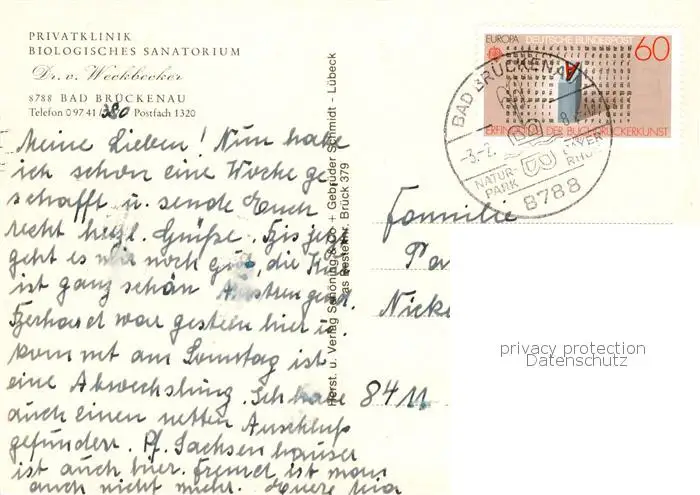 PRIVATKLINIK
BIOLOGISCHES SANATORIUM
Dr. v. Weckbecker
8788 BAD BRÜCKENAU
Telefon 0 97 41/380 Postfach 1320
Meine Lieben! Nun habe
ich schon eine Woche ge
schafft u. sende Euch
recht herzl. Grüße. Bis jetzt
geht es mir noch gut, die Kur
ist ganz schön Anstrengend.
Gerhard war gestern hier u.
kommt am Samstag ist
eine Abwechslung. Ich habe
auch einen netten Anschluß
gefunden. Pf. Sachsenhauser
ist auch hier. Fremd ist man
auch nicht mehr. Euere
Herst. u. Verlag Schöning & Co + Gebrüder Schmidt - Lübeck
Das Bestellnr. Brück 379
EUROPA DEUTSCHE BUNDESPOST 60
ERFINDUNG DER BUCHDRUCKERKUNST
BAD BRÜCKENAU
-3.-2.
NATUR-
PARK
BAYER.
RHÖN
8788
Familie
Pa
Nicke
8411
privacy protection
Datenschutz